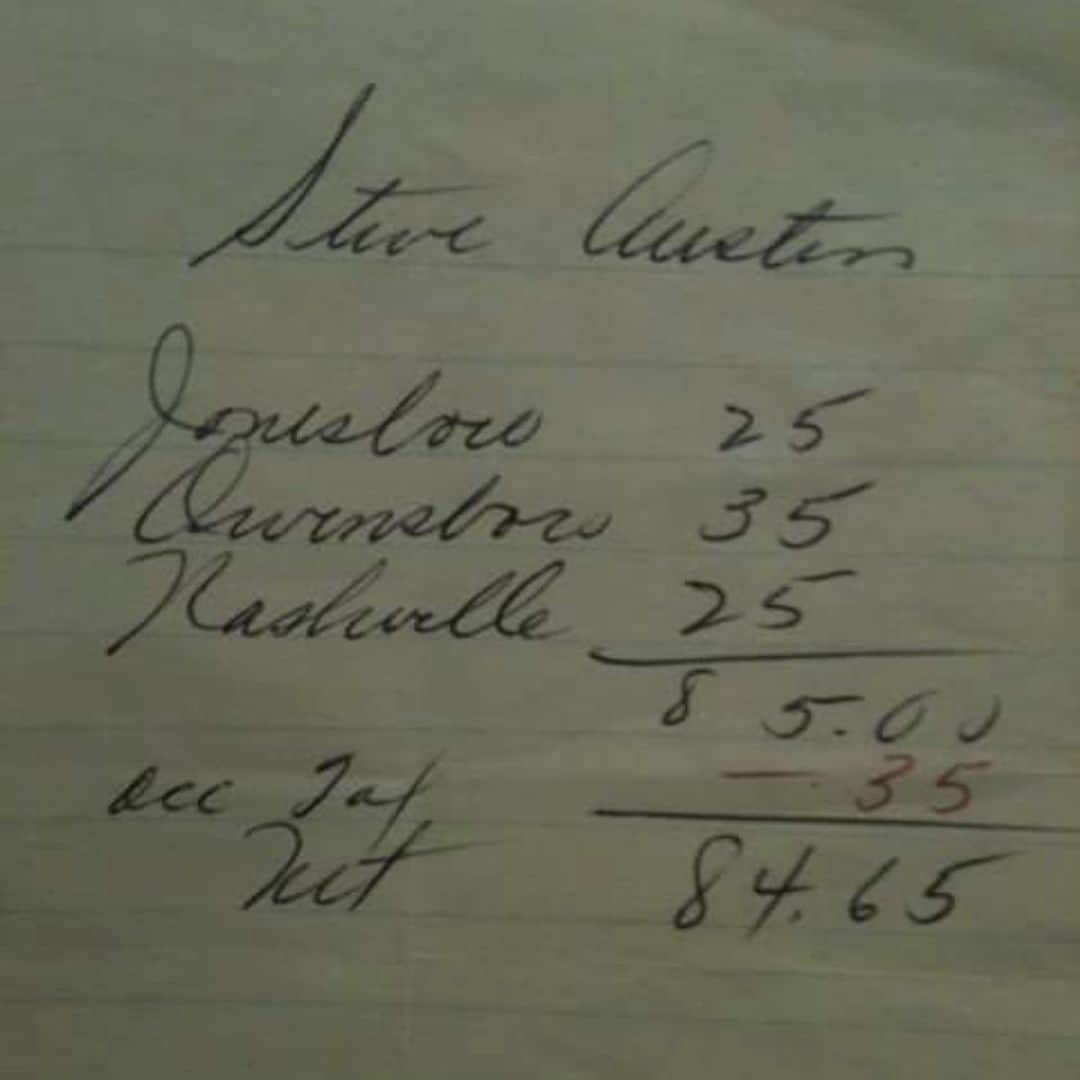 Steve Austin
Jonesboro 25
Owensboro 35
Nashville 25
85.00
occ Tax -.35
Net 84.65